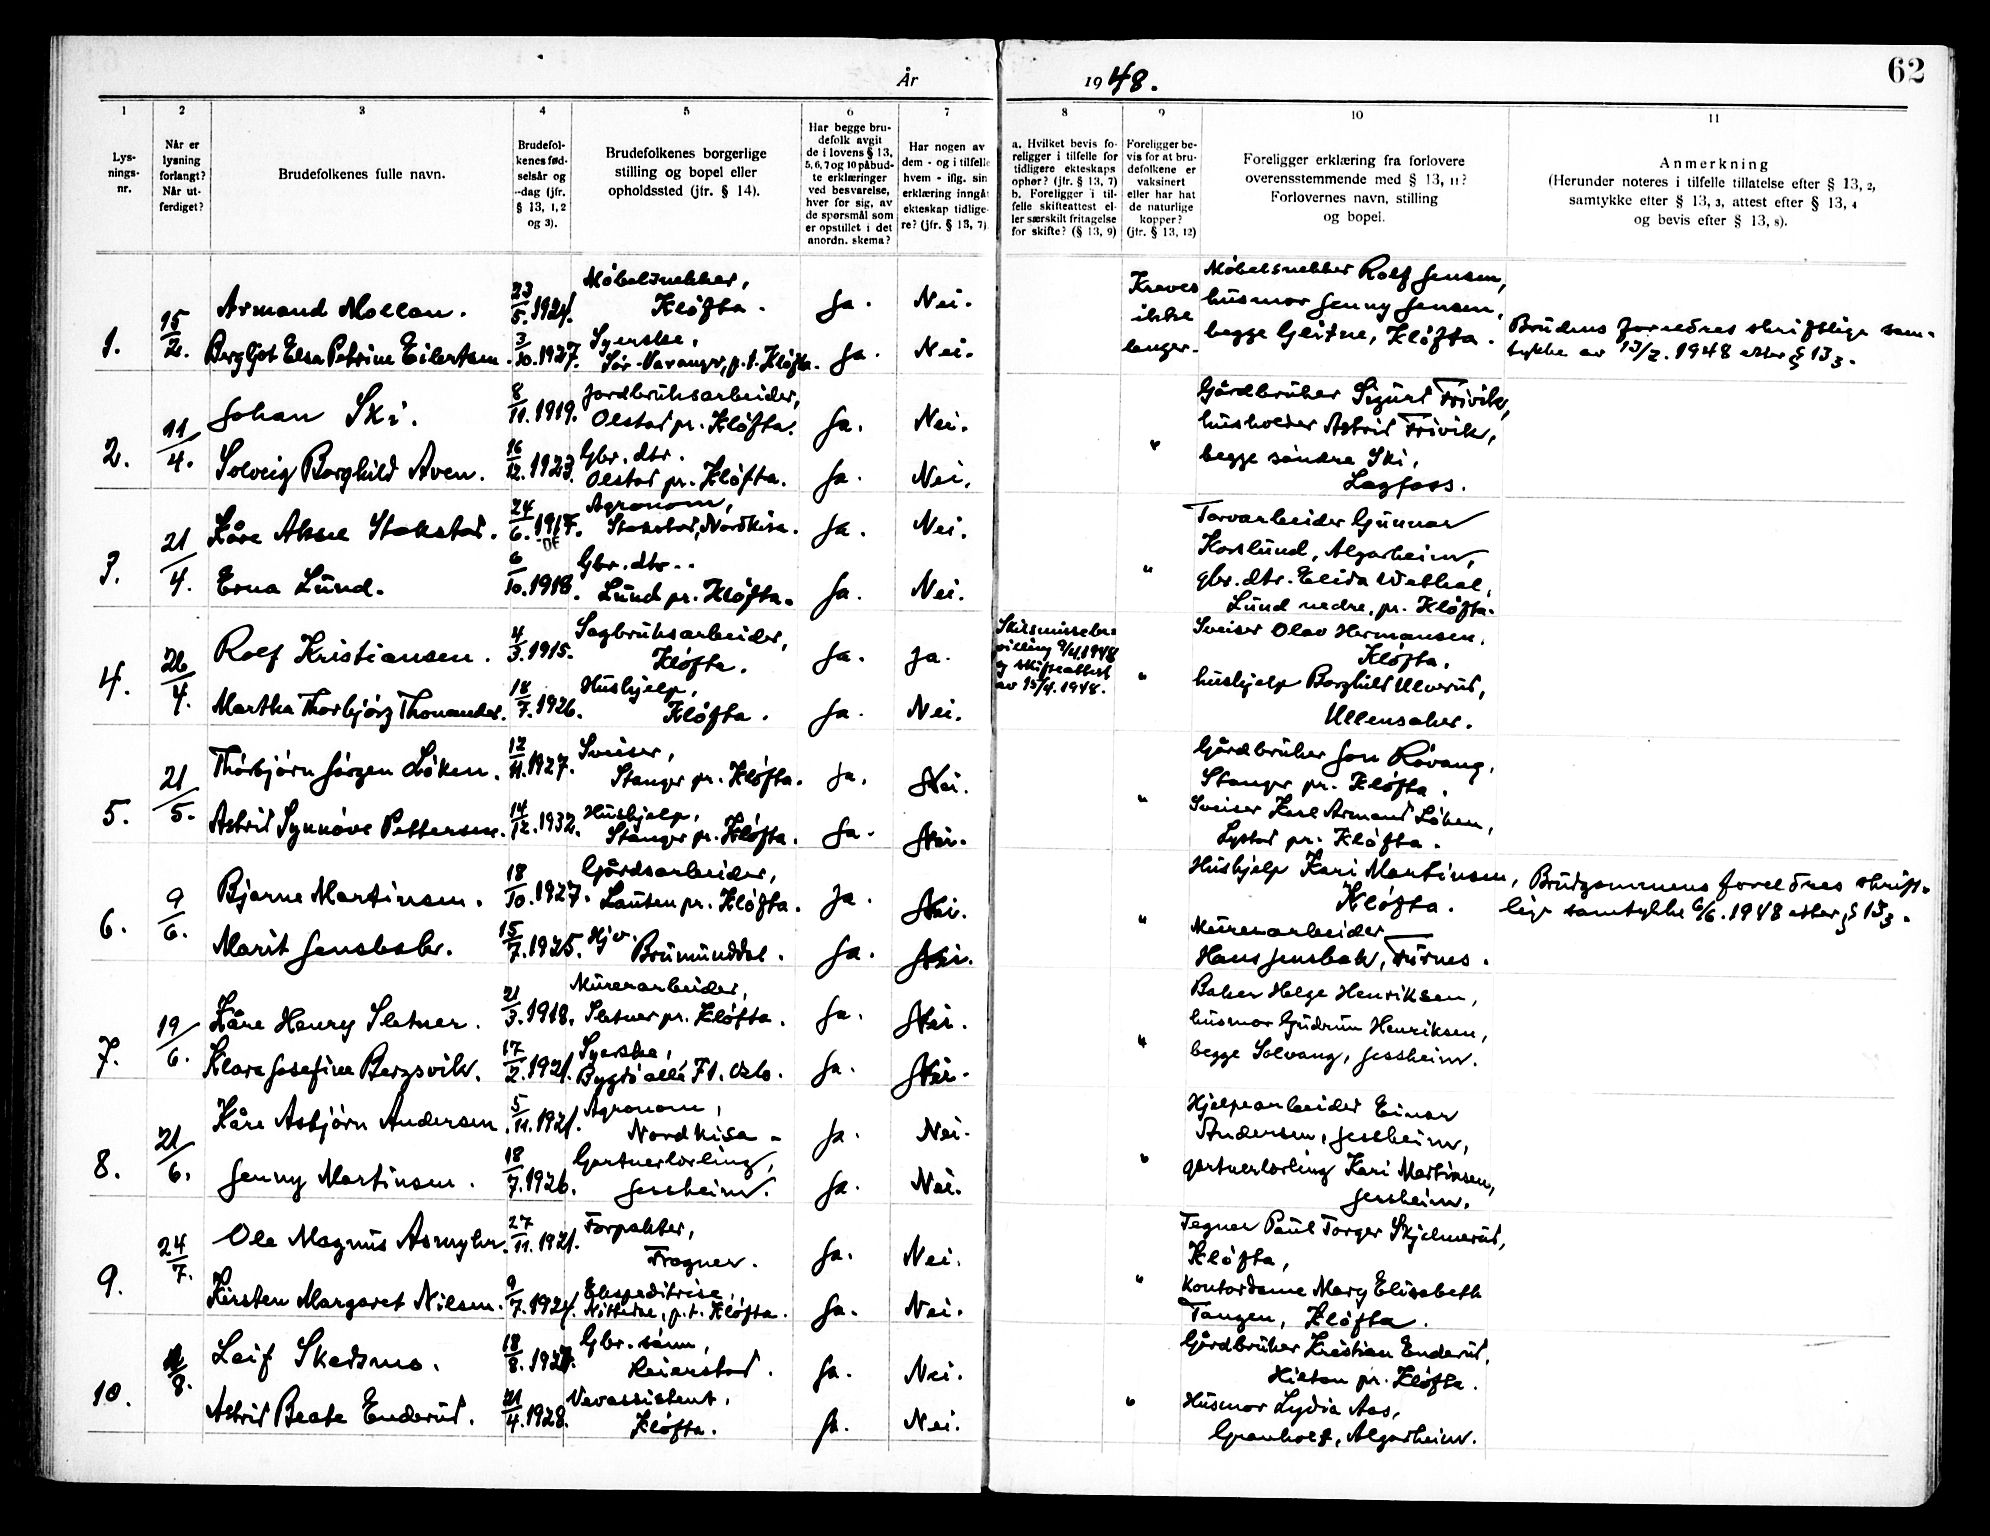 62
År 1948.
1
Lys-
nings-
nr.
2
Når er
lysning
forlangt?
Når ut-
ferdiget?
3
Brudefolkenes fulle navn.
4
Brudefol-
kenes fød-
selsår og
-dag (jfr.
§ 13, 1, 2
og 3).
5
Brudefolkenes borgerlige
stilling og bopel eller
opholdssted (jfr. § 14).
6
Har begge bru-
defolk avgit
de i lovens § 13,
5, 6, 7 og 10 påbud-
te erklæringer
ved besvarelse,
hver for sig, av
de spørsmål som
er opstillet i det
anordn. skema?
7
Har nogen av
dem - og i tilfelle
hvem - iflg. sin
erklæring inngått
ekteskap tidlige-
re? (jfr. § 13, 7)
8
a. Hvilket bevis fo-
religger i tilfelle for
tidligere ekteskaps
ophør? (jfr. § 13, 7)
b. Foreligger i til-
felle skifteattest el-
ler særskilt fritagelse
for skifte? (§ 13, 9)
9
Foreligger be-
vis for at bru-
defolkene er
vaksinert
eller har hat
de naturlige
kopper?
(jfr. § 13, 12)
10
Foreligger erklæring fra forlovere
overensstemmende med § 13, 11?
Forlovernes navn, stilling
og bopel.
11
Anmerkning
(Herunder noteres i tilfelle tillatelse efter § 13, 2,
samtykke efter § 13, 3, attest efter § 13, 4
og bevis efter § 13, 8).
1.
15/2.
Armand Mollan.
23/5.1924.
Møbelsnekker,
Kløfta.
Ja.
Nei.
Bergljot Elsa Petrine Eilertsen.
3/10.1927.
Syerske,
Sør-Varanger, p.t. Kløfta.
Ja.
Nei.
Kreves
ikke
lenger.
Møbelsnekker Rolf Jensen,
husmor Jenny Jensen,
begge Gleitne, Kløfta.
Brudens foreldres skriftlige sam-
tykke av 13/2. 1948 etter § 13 3.
2.
11/4.
Johan Ski.
8/11.1919.
Jordbruksarbeider,
Olstad pr. Kløfta.
Ja.
Nei.
Solveig Borghild Aven.
16/12.1923.
Gbr. dtr.
Olstad pr. Kløfta.
Ja.
Nei.
"
Gårdbruker Sigurd Trivik,
husholder Astrid Trivik,
begge søndre Ski,
Lagfoss.
3.
21/4.
Kåre Aksel Stokstad.
24/6.1917.
Agronom,
Stokstad, Nordkisa.
Ja.
Nei.
Erna Lund.
6/10.1918.
Gbr. dtr.
Lund pr. Kløfta.
Ja.
Nei.
"
Torvarbeider Gunnar
Korslund, Algarheim,
gbr. dtr. Elida Wethal,
Lund nedre, pr. Kløfta.
4.
26/4.
Rolf Kristiansen.
4/3.1915.
Sagbruksarbeider,
Kløfta.
Ja.
Ja.
Martha Thorbjørg Thonander.
18/7.1926.
Hushjelp,
Kløfta.
Ja.
Nei.
Skilsmissebe-
villing 9/4.1948
og skifteattest
av 15/4. 1948.
"
Sveiser Olav Hermansen,
Kløfta.
hushjelp Borghild Ulverud,
Ullensaker.
5.
21/5.
Thorbjørn Jørgen Løken.
12/11.1927.
Sveiser,
Stanger pr. Kløfta.
Ja.
Nei.
Astrid Synnøve Pettersen.
14/12.1932.
Hushjelp,
Stanger pr. Kløfta.
Ja.
Nei.
"
Gårdbruker Jon Råvang,
Stanger pr. Kløfta.
Sveiser Karl Armand Løken,
Lystad pr. Kløfta.
6.
9/6.
Bjarne Martinsen.
18/10.1927.
Gårdsarbeider,
Lauten pr. Kløfta.
Ja.
Nei.
Marit Jensbak.
15/7.1925.
Hjv.
Brumunddal.
Ja.
Nei.
"
Hushjelp Kari Martinsen,
Kløfta.
Murerarbeider
Hans Jensbak, Furnes.
Brudgommens foreldres skrift-
lige samtykke 6/6. 1948 etter § 13 3.
7.
19/6.
Kåre Henry Sletner.
21/3.1918.
Murerarbeider,
Sletner pr. Kløfta.
Ja.
Nei.
Klara Josefine Bergsvik.
17/2.1921.
Syerske,
Bygdø allé 71. Oslo.
Ja.
Nei.
"
Baker Helge Henriksen,
husmor Gudrun Henriksen,
begge Solvang, Jessheim.
8.
21/6.
Kåre Asbjørn Andersen.
5/11.1921.
Agronom,
Nordkisa.
Ja.
Nei.
Jenny Martinsen.
18/7.1926.
Gartnerlærling,
Jessheim.
Ja.
Nei.
"
Hjelpearbeider Einar
Andersen, Jessheim,
gartnerlærling Kari Martinsen,
Jessheim.
9.
24/7.
Ole Magnus Asmyhr.
27/11.1921.
Forpakter,
Frogner.
Ja.
Nei.
Kirsten Margaret Nilsen.
9/7.1924.
Ekspeditrise,
Nittedal, p.t. Kløfta.
Ja.
Nei.
"
Tegner Paul Torger Skjelmerud,
Kløfta,
kontordame Mary Elisabeth
Tangen, Kløfta.
10.
/8.
Leif Skedsmo.
18/8.1927.
Gbr. sønn,
Reierstad.
Ja.
Nei.
Astrid Beate Enderud.
21/4.1928.
Vevassistent,
Kløfta.
Ja.
Nei.
"
Gårdbruker Kristian Enderud,
Hilton pr. Kløfta.
Husmor Lydia Aas,
Granholt, Algarheim.